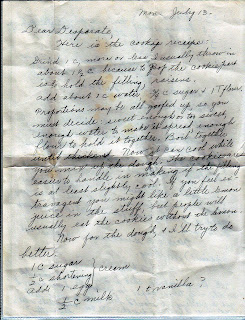 Mon. July 13 -
Dear Desperate,
Here is the cookie recipe:
Grind 1 c, more or less - I usually throw in
about 1 1/2 c because to get the cookie part
to hold the filling, raisins.
Add about 1 c water, 1/2 c sugar & 1 T flour.
Proportions may be all goofed up so you
must decide sweet enough or to suit,
enough water to make it spread, enough
flour to hold it together. Boil together
until thicker. Now let cool while
you mix up the dough. The cookies are
easier to handle in making if filling
is at least slightly cool. If you feel so
you might like a little lemon
juice in the stuff, but people will
usually eat the cookies without the lemon.
Now for the dough, & I'll try to do
better.
1 C sugar
1/2 c shortening } cream
Add 1 egg
1/2 c milk 1 t vanilla ?